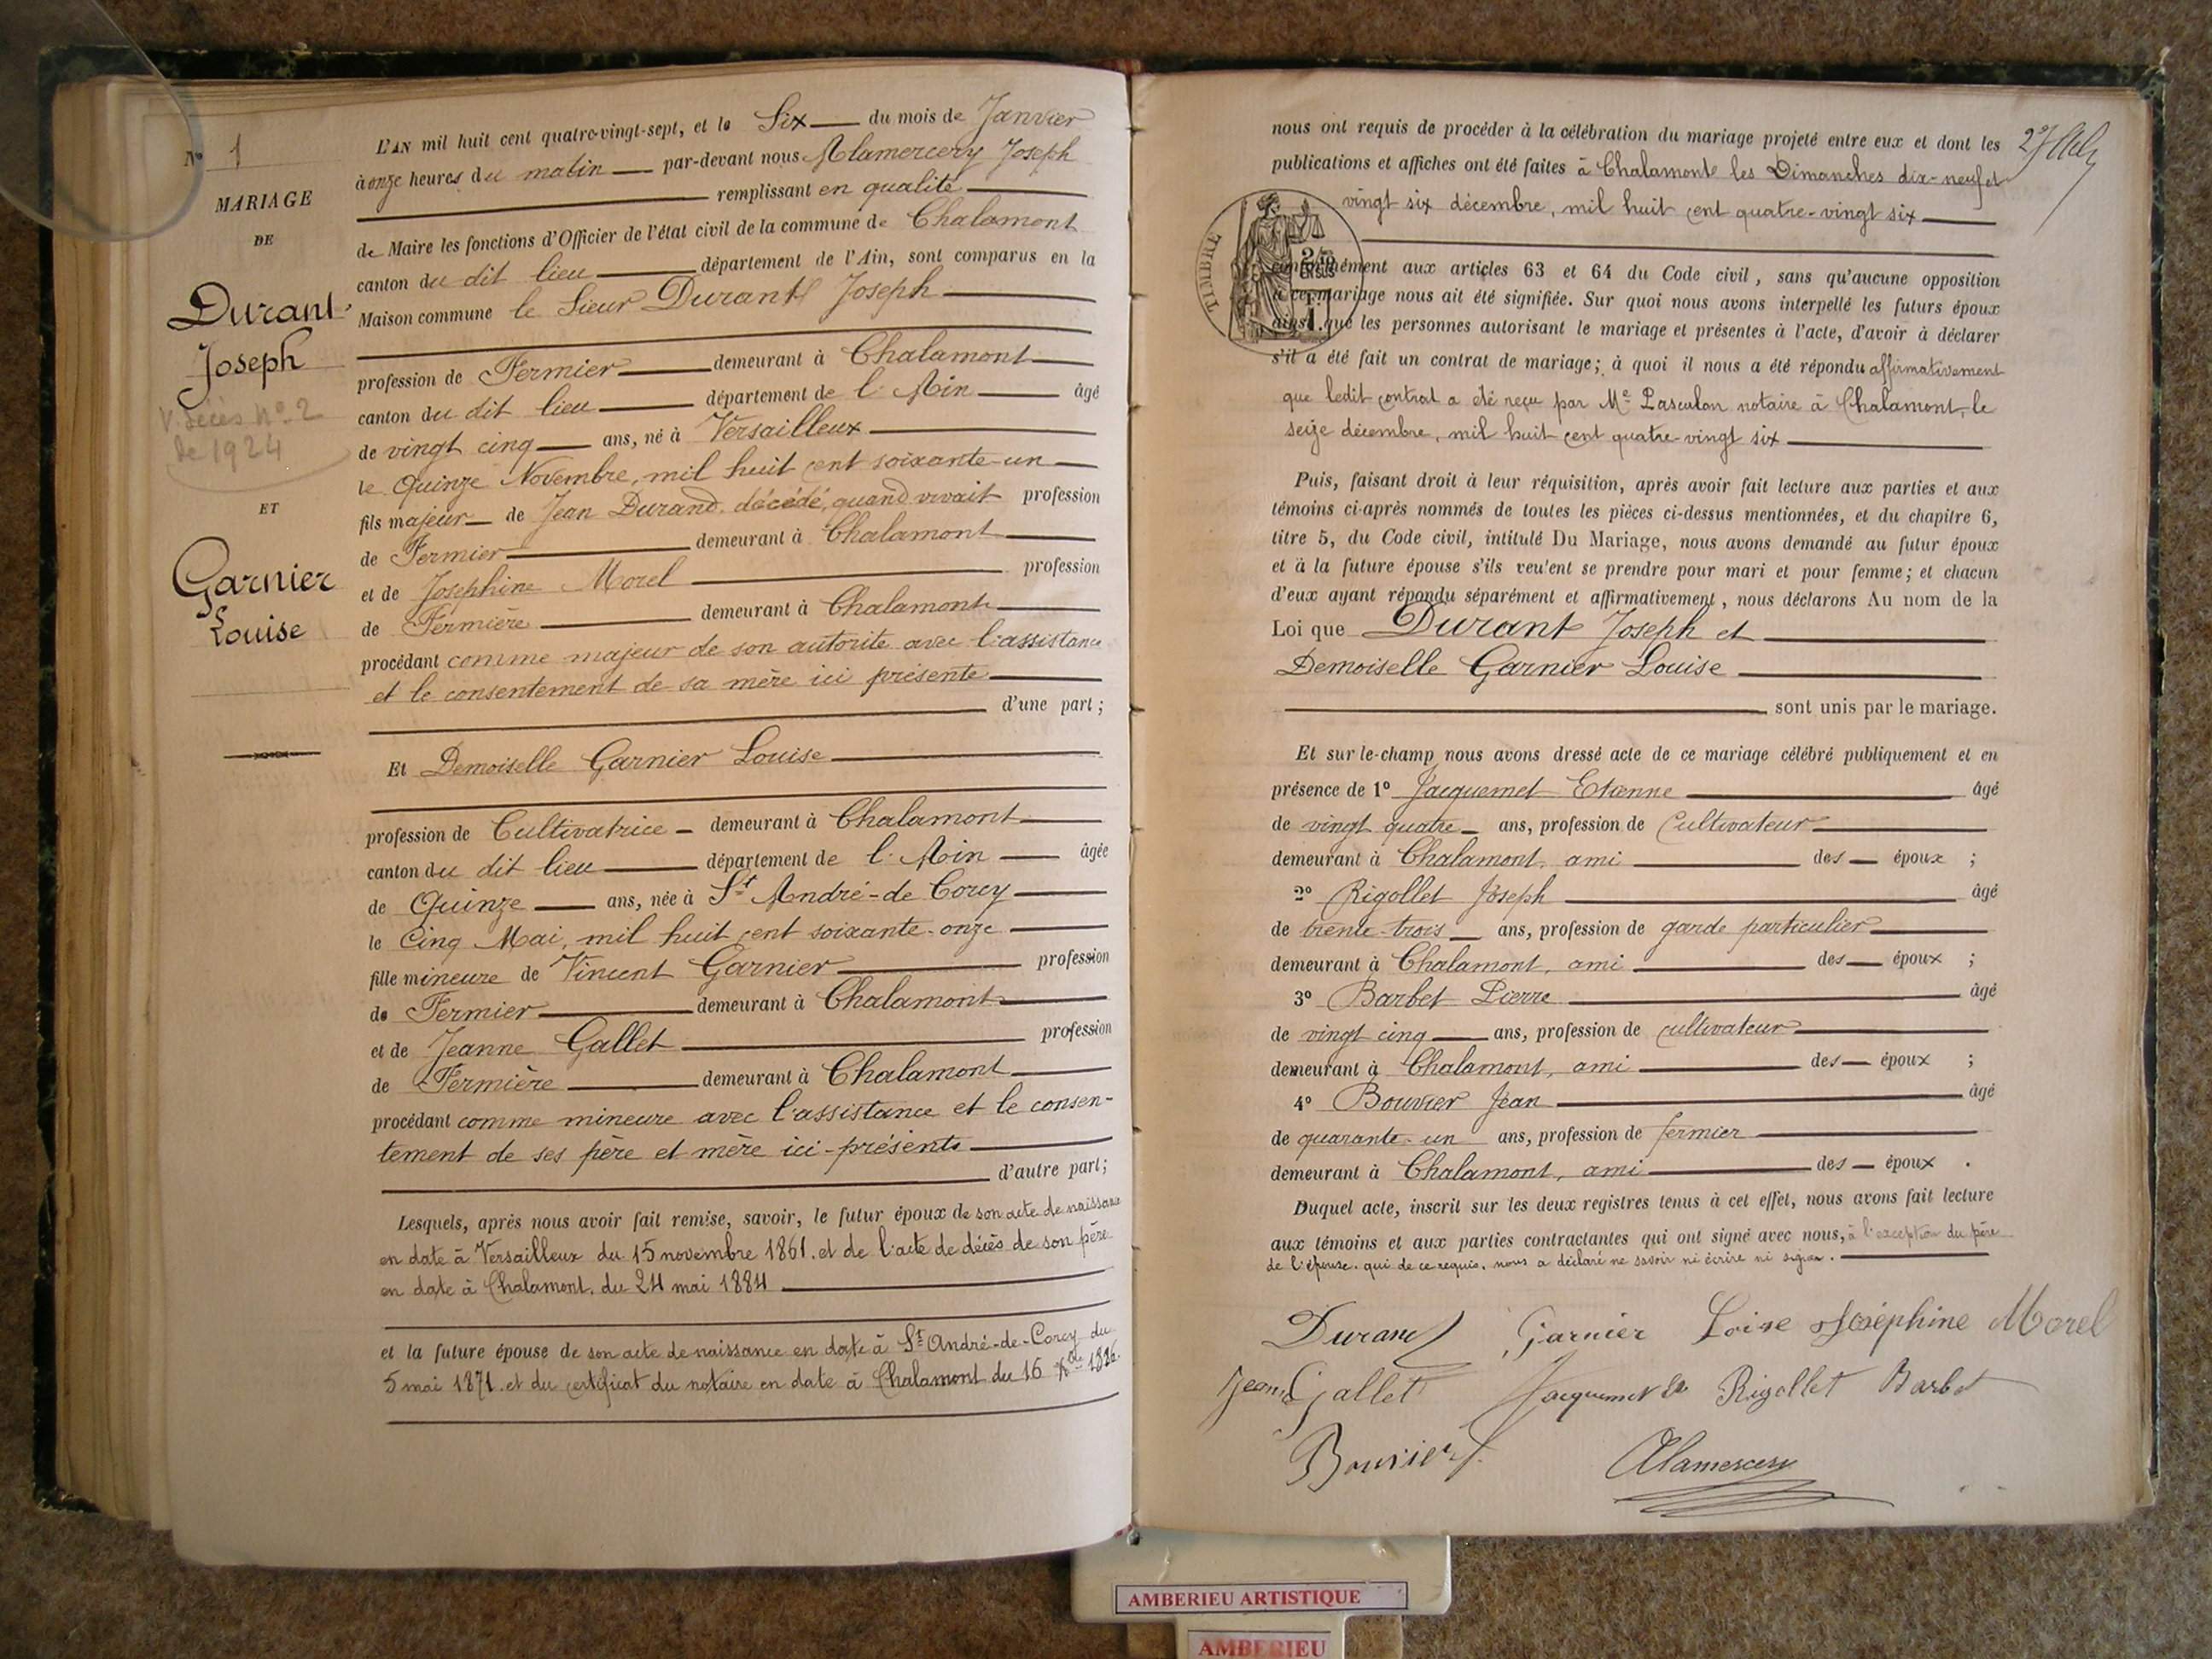 N° 1
MARIAGE
DE
Durant
Joseph
V. décès N° 2
de 1924
ET
Garnier
Louise
L'AN mil huit cent quatre-vingt-sept, et le Six du mois de Janvier
à onze heures du matin par-devant nous Alamercery Joseph
remplissant en qualité
de Maire les fonctions d'Officier de l'état civil de la commune de Chalamont
canton du dit lieu département de l'Ain, sont comparus en la
Maison commune le Sieur Durant Joseph
profession de Fermier demeurant à Chalamont
canton du dit lieu département de l'Ain âgé
de vingt cinq ans, né à Versailleux
le Quinze Novembre, mil huit cent soixante-un
fils majeur de Jean Durand, décédé, quand vivait profession
de Fermier demeurant à Chalamont
et de Josephine Morel profession
de Fermière demeurant à Chalamont
procédant comme majeur de son autorité avec l'assistance
et le consentement de sa mère ici présente
d'une part ;
Et Demoiselle Garnier Louise
profession de Cultivatrice demeurant à Chalamont
canton du dit lieu département de l'Ain âgée
de Quinze ans, née à St André-de Corcy
le Cinq Mai, mil huit cent soixante-onze
fille mineure de Vincent Garnier profession
de Fermier demeurant à Chalamont
et de Jeanne Gallet profession
de Fermière demeurant à Chalamont
procédant comme mineure avec l'assistance et le consen-
tement de ses père et mère ici-présents
d'autre part;
Lesquels, après nous avoir fait remise, savoir, le futur époux de son acte de naissance
en date à Versailleux du 15 novembre 1861. et de l'acte de décès de son père
en date à Chalamont. du 24 mai 1884
et la future épouse de son acte de naissance en date à St André-de-Corcy du
5 mai 1871. et du certificat du notaire en date à Chalamont du 16 Xbre 1886.
2e
nous ont requis de procéder à la célébration du mariage projeté entre eux et dont les
publications et affiches ont été faites à Chalamont les Dimanches dix-neuf et
vingt six décembre, mil huit cent quatre-vingt six
TIMBRE
conformément aux articles 63 et 64 du Code civil, sans qu'aucune opposition
à ce mariage nous ait été signifiée. Sur quoi nous avons interpellé les futurs époux
ainsi que les personnes autorisant le mariage et présentes à l'acte, d'avoir à déclarer
s'il a été fait un contrat de mariage; à quoi il nous a été répondu affirmativement
que ledit contrat a été reçu par Me Pasculon notaire à Chalamont, le
seize décembre, mil huit cent quatre-vingt six
Puis, faisant droit à leur réquisition, après avoir fait lecture aux parties et aux
témoins ci-après nommés de toutes les pièces ci-dessus mentionnées, et du chapitre 6,
titre 5, du Code civil, intitulé Du Mariage, nous avons demandé au futur époux
et à la future épouse s'ils veulent se prendre pour mari et pour femme; et chacun
d'eux ayant répondu séparément et affirmativement, nous déclarons Au nom de la
Loi que Durant Joseph et
Demoiselle Garnier Louise
sont unis par le mariage.
Et sur-le-champ nous avons dressé acte de ce mariage célébré publiquement et en
présence de 1° Jacquemet Etienne âgé
de vingt quatre ans, profession de Cultivateur
demeurant à Chalamont, ami des époux ;
2° Rigollet Joseph âgé
de trente-trois ans, profession de garde particulier
demeurant à Chalamont, ami des époux ;
3° Barbet Pierre âgé
de vingt cinq ans, profession de cultivateur
demeurant à Chalamont, ami des époux ;
4° Bouvier Jean âgé
de quarante-un ans, profession de fermier
demeurant à Chalamont, ami des époux .
Duquel acte, inscrit sur les deux registres tenus à cet effet, nous avons fait lecture
aux témoins et aux parties contractantes qui ont signé avec nous, à l'exception du père
de l'épouse. qui de ce requis, nous a déclaré ne savoir ni écrire ni signer.
Durand Garnier Loise Joséphine Morel
Jeanne Gallet Jacquemet Rigollet Barbet
Bouvier J. Alamercery
AMBERIEU ARTISTIQUE
AMBERIEU